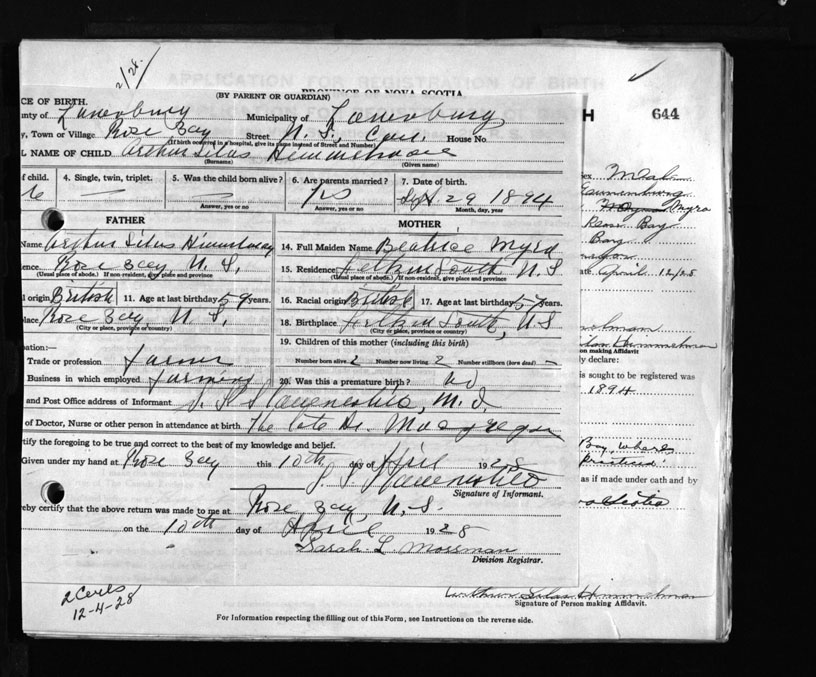 2/28.
APPLICATION FOR REGISTRATION OF BIRTH
PROVINCE OF NOVA SCOTIA
(BY PARENT OR GUARDIAN)
H 644
CE OF BIRTH.
nty of Lunenburg Municipality of Lunenburg
y, Town or Village Rose Bay Street N. S., Can. House No
(If birth occurred in a hospital, give its name instead of Street and Number)
L NAME OF CHILD Arthur Silas
(Surname) (Given name)
f child. 4. Single, twin, triplet. 5. Was the child born alive? 6. Are parents married? 7. Date of birth.
6 — — Yes Sept. 29 1894
Answer, yes or no Answer, yes or no Month, day, year
FATHER MOTHER
Name Arthur Silas 14. Full Maiden Name Beatrice Myra
ence Rose Bay N. S. 15. Residence South, N S
(Usual place of abode.) If non-resident, give place and province (Usual place of abode.) If non-resident, give place and province
l origin British 11. Age at last birthday 59 years. 16. Racial origin British 17. Age at last birthday 57 years.
lace Rose Bay, N. S. 18. Birthplace South, N S
(City or place, province or country) (City or place, province or country)
19. Children of this mother (including this birth)
ation:—
Trade or profession farmer Number born alive 2 Number now living 2 Number stillborn (born dead) —
Business in which employed farming 20. Was this a premature birth? no
and Post Office address of Informant M. D.
of Doctor, Nurse or other person in attendance at birth. The late Dr. Macgregor
tify the foregoing to be true and correct to the best of my knowledge and belief.
Given under my hand at Rose Bay this 10th day of April 1928
Signature of Informant.
eby certify that the above return was made to me at Rose Bay, N. S.
on the 10th day of April 1928
Sarah L Mossman
Division Registrar.
2 Certs
12-4-28
ex Male
Lunenburg
Myra
Rose Bay
Bay
ate April 12/28
on making Affidavit
ly declare:
is sought to be registered was
1894
Bay, where
as if made under oath and by
Arthur Silas Himmelman
Signature of Person making Affidavit.
For Information respecting the filling out of this Form, see Instructions on the reverse side.